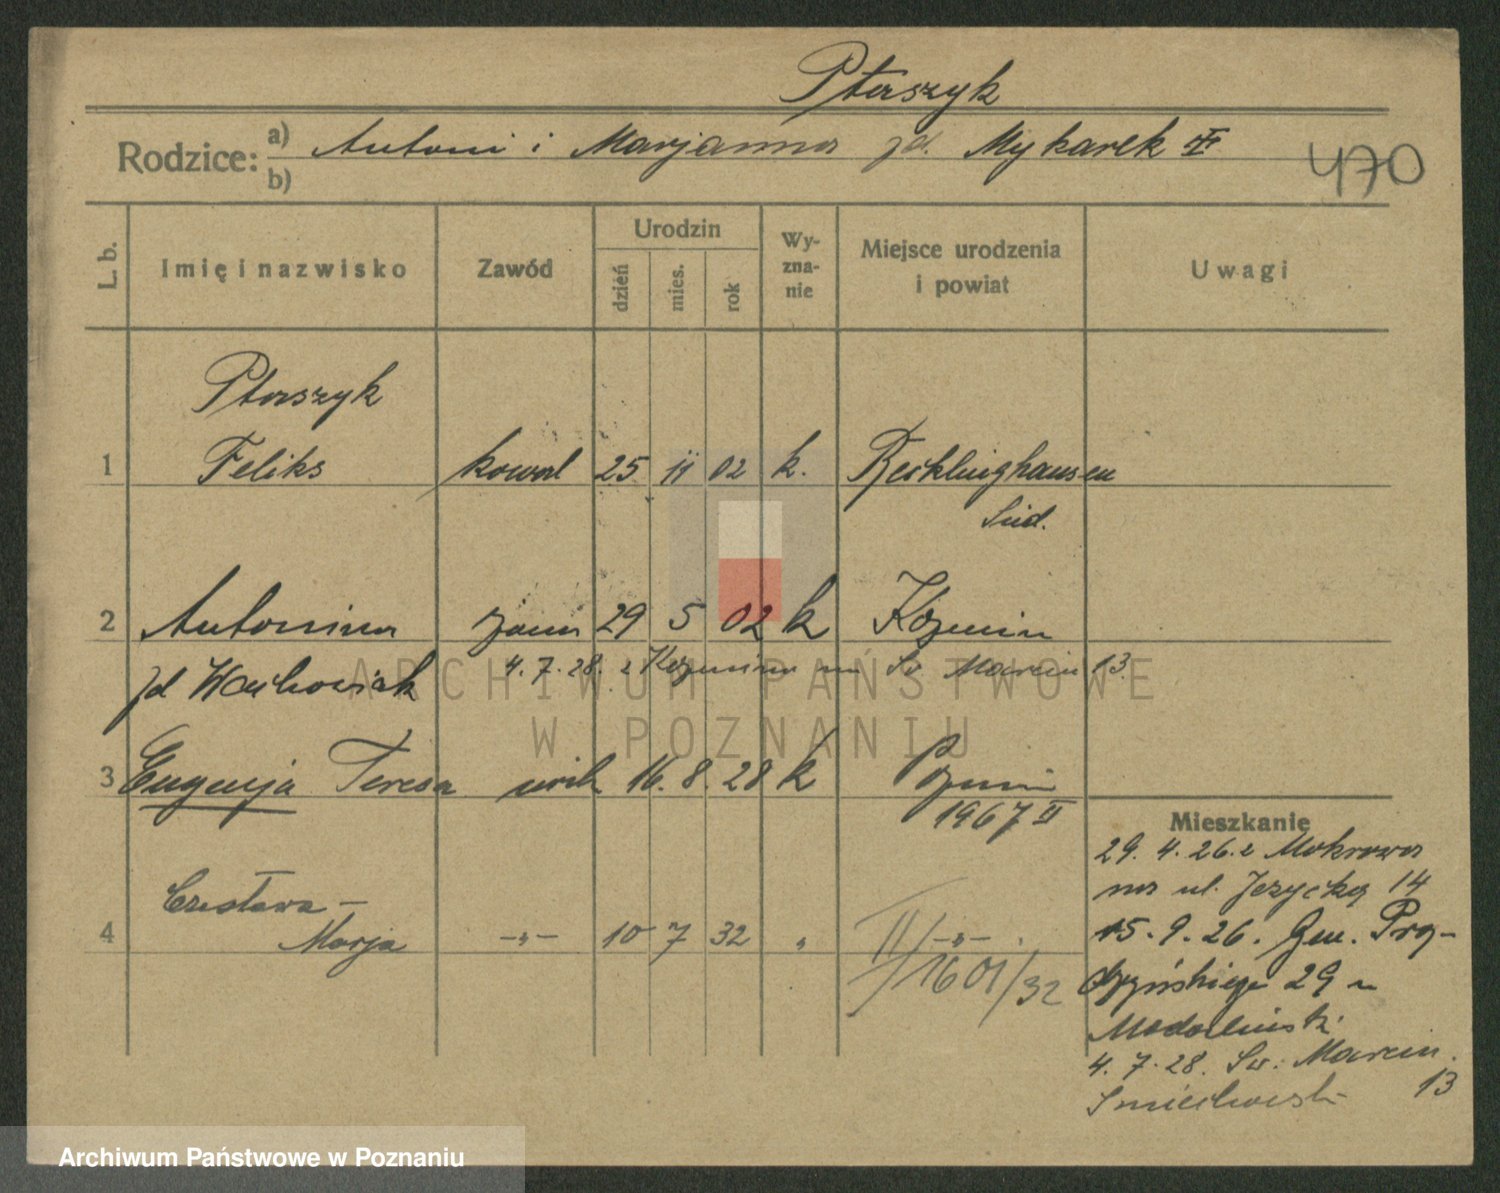 Ptaszyk
Rodzice: a) Antoni i Marjanna zd. Mykarek
b)
470
L. b.
Imię i nazwisko
Zawód
Urodzin
dzień
mies.
rok
Wy-
zna-
nie
Miejsce urodzenia
i powiat
Uwagi
Ptaszyk
1 Feliks kowal 25 11 02 k. Recklinghausen
Süd.
2 Antonina żona 29 5 02 k Koźmin
zd Wachowiak 4. 7. 28. z Koźmina na Św Marcin 13.
3 Eugenja Teresa 16. 8. 28 k Poznań
1967 II
Czesława-
4 Marja -„- 10 7 32 „ -„-
II/1601/32
Mieszkanie
29. 4. 26. z Mokrowa
na ul. Jeżycką 14
15. 9. 26. Gen. Prą-
dzyńskiego 29 u
Madaliński
4. 7. 28. Św. Marcin
13
ARCHIWUM PAŃSTWOWE
W POZNANIU
Archiwum Państwowe w Poznaniu